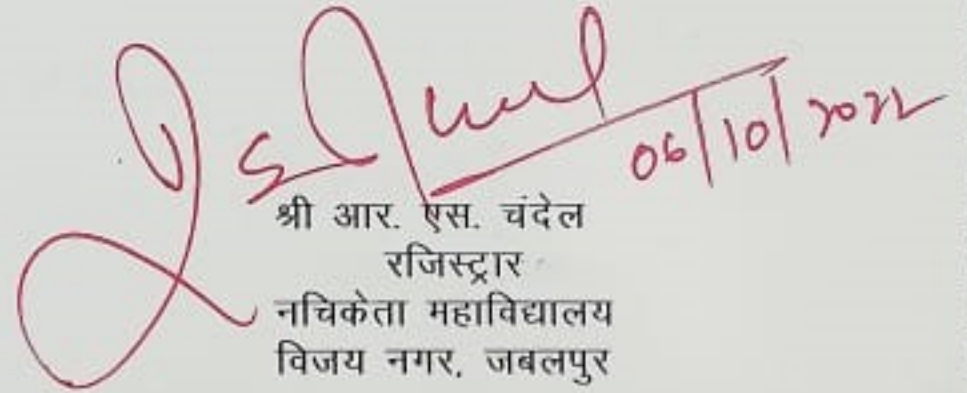 06/10/2022
श्री आर. एस. चंदेल
रजिस्ट्रार
नचिकेता महाविद्यालय
विजय नगर, जबलपुर